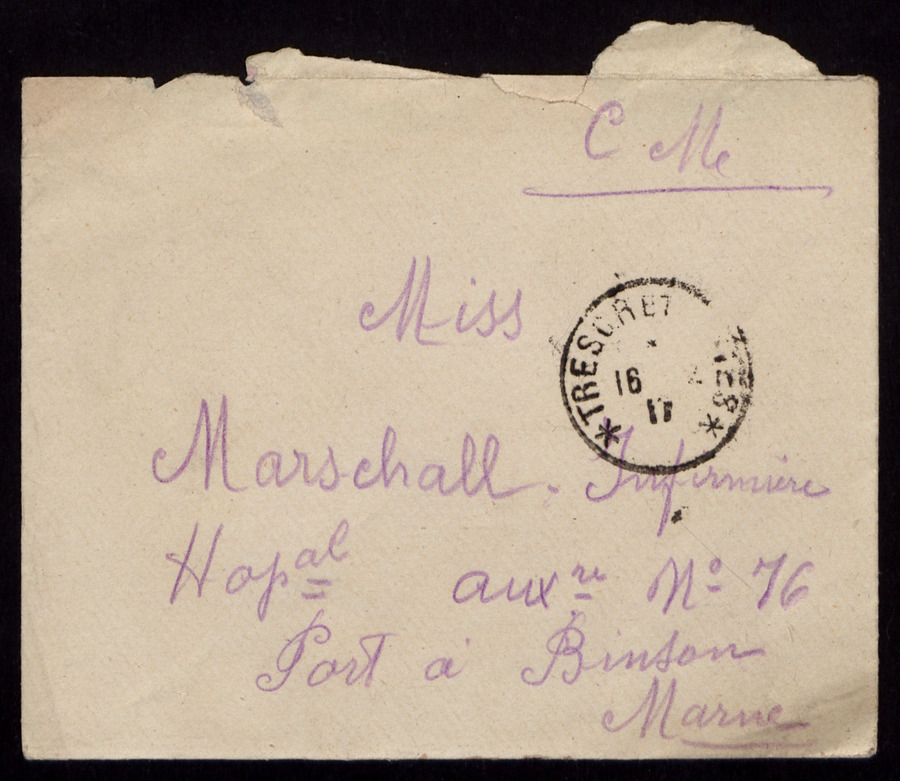 C Me
Miss
*TRESOR ET
16
17
Marschall. Infirmière
Hopal auxre No 76
Port à Binson
Marne